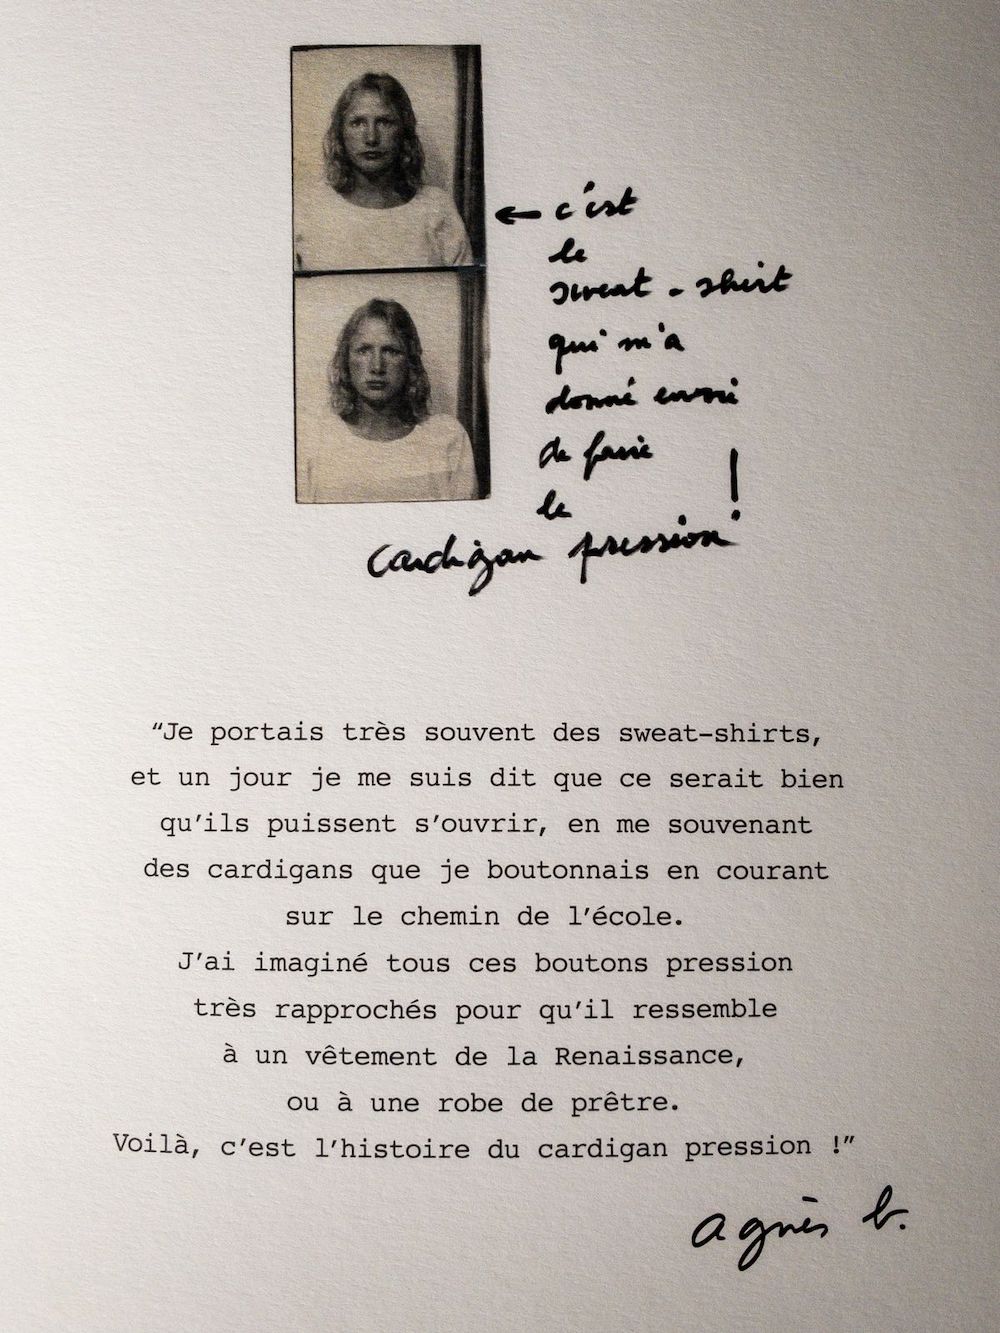 ← c'est
le
sweat-shirt
qui m'a
donné envie
de faire
le
cardigan pression !
“Je portais très souvent des sweat-shirts,
et un jour je me suis dit que ce serait bien
qu’ils puissent s’ouvrir, en me souvenant
des cardigans que je boutonnais en courant
sur le chemin de l’école.
J’ai imaginé tous ces boutons pression
très rapprochés pour qu’il ressemble
à un vêtement de la Renaissance,
ou à une robe de prêtre.
Voilà, c’est l’histoire du cardigan pression !”
agnès b.